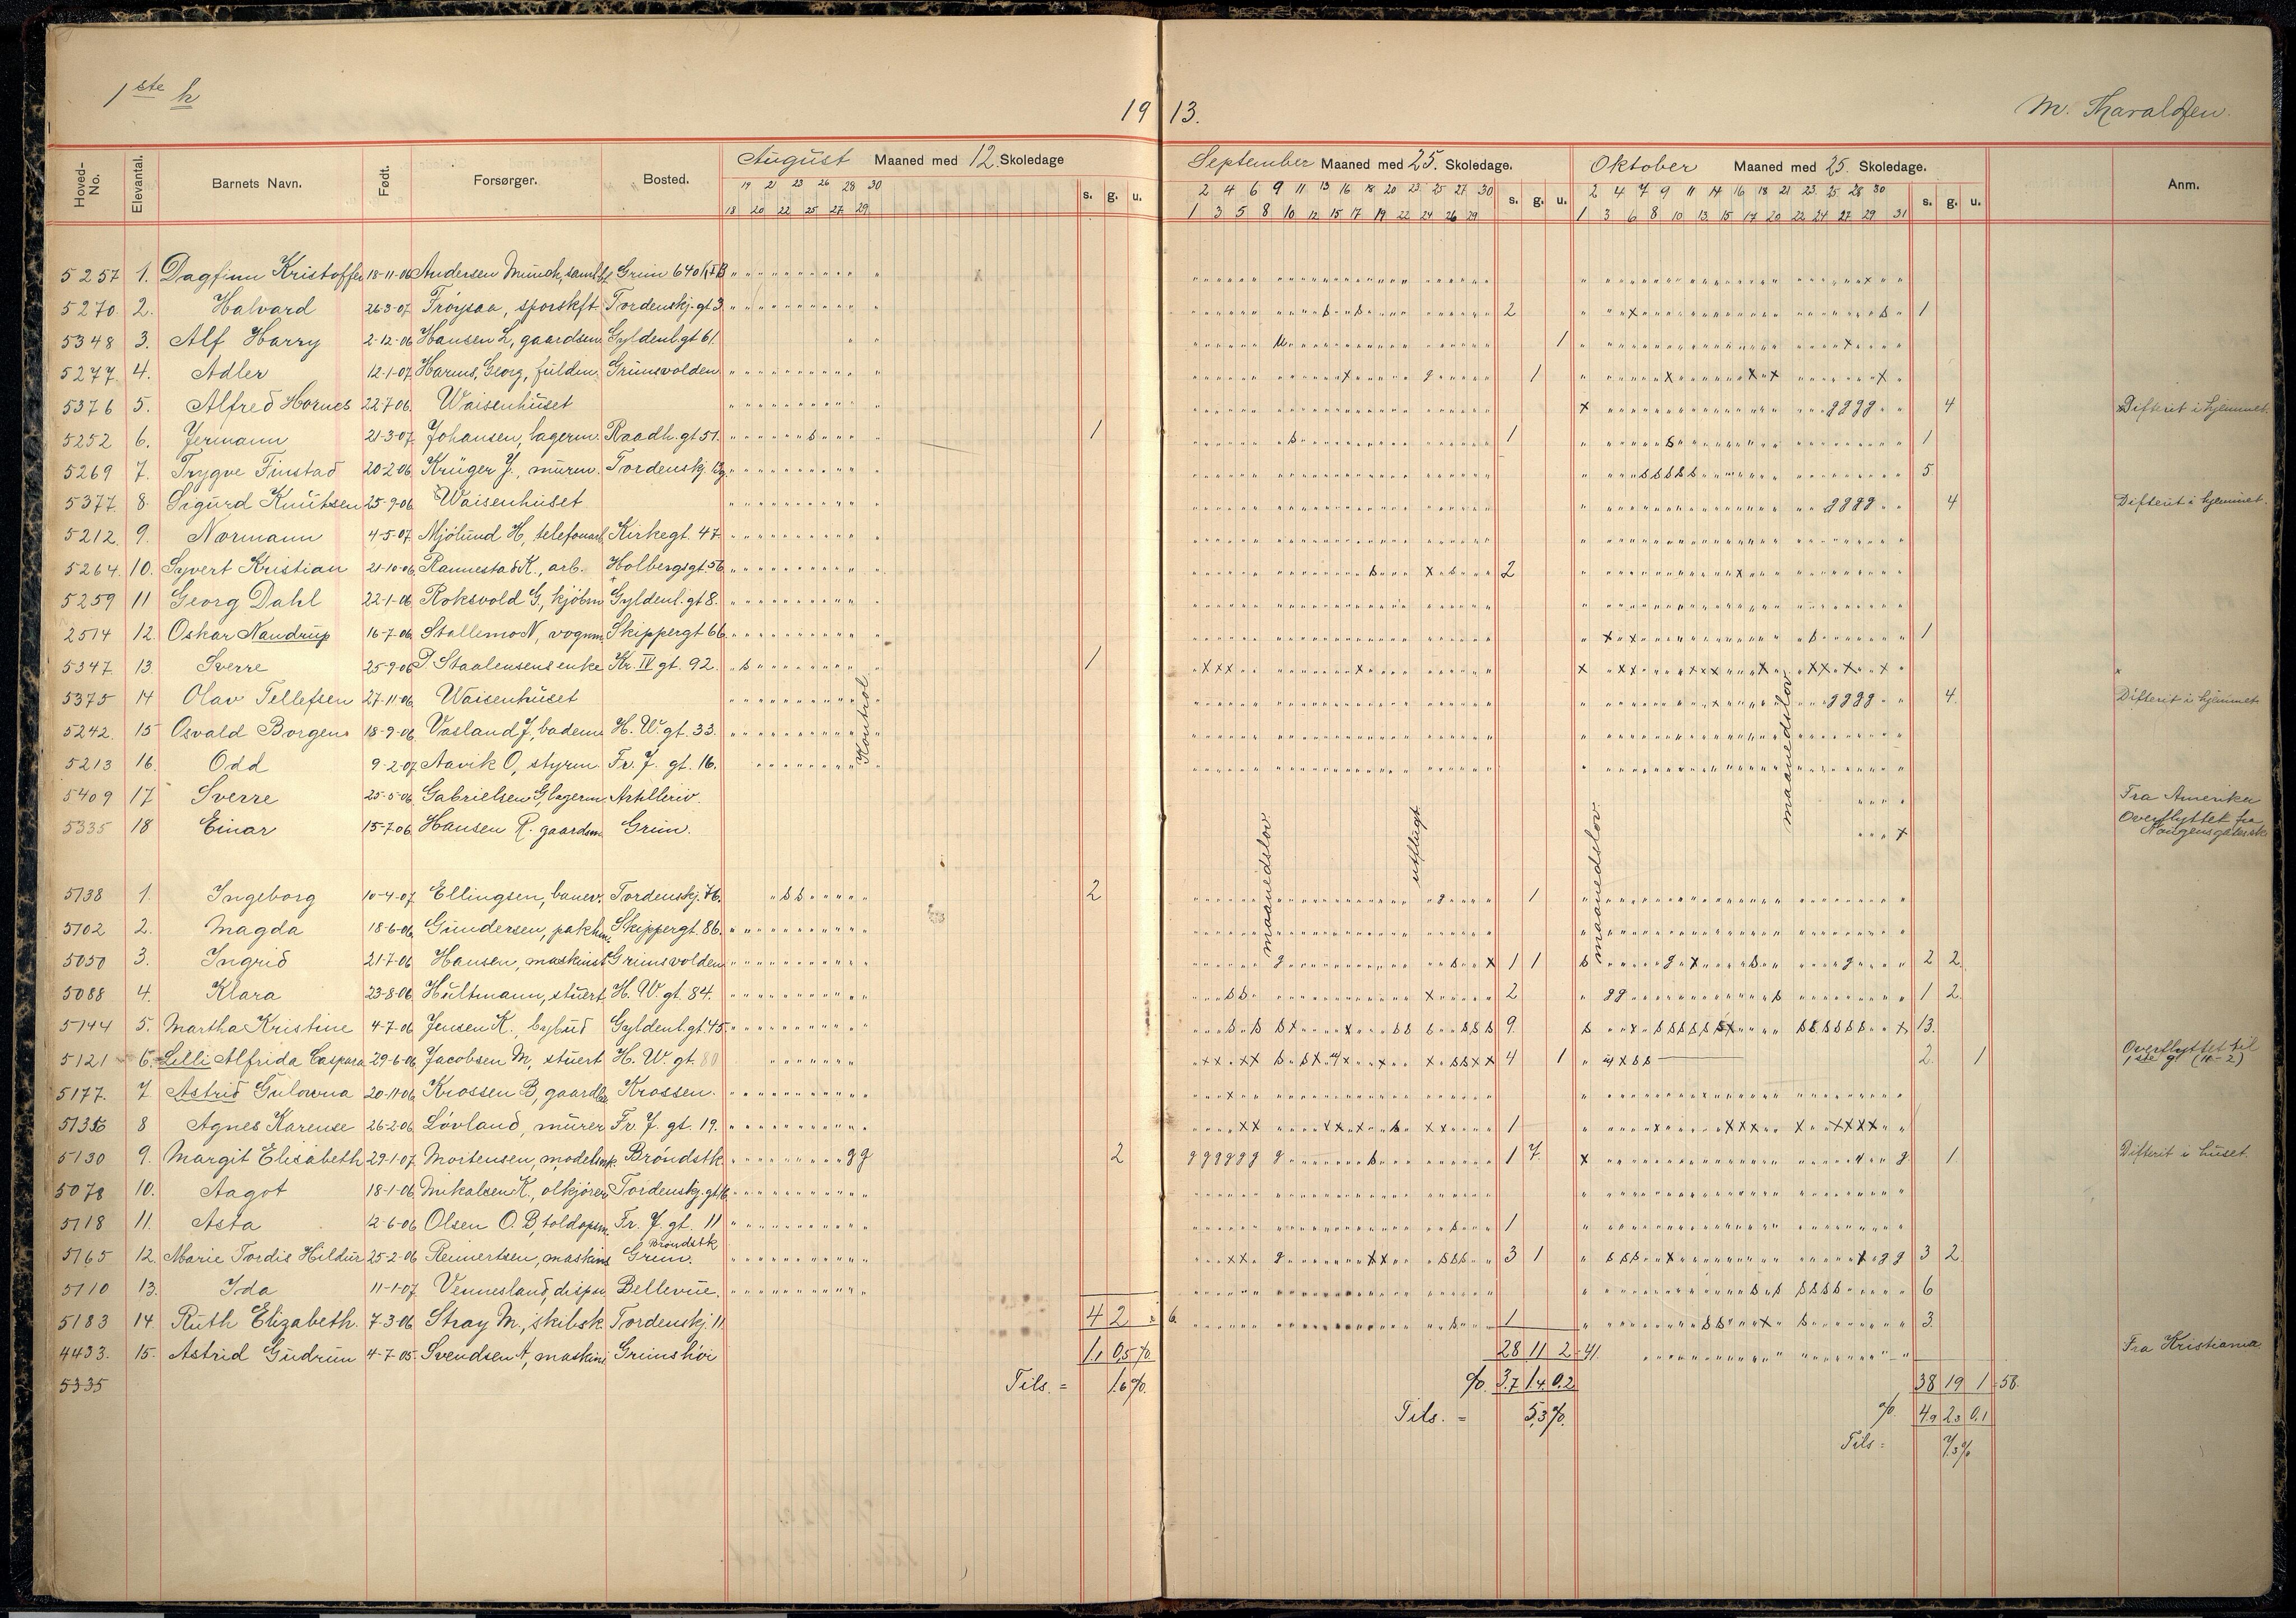 1ste h
19 13.
M. Tharaldsen.
Hoved-No. Elevantal. Barnets Navn. Født. Forsørger. Bosted. August Maaned med 12. Skoledage s. g. u. September Maaned med 25. Skoledage. s. g. u. Oktober Maaned med 25. Skoledage. s. g. u. Anm.
19 21 23 26 28 30 2 4 6 9 11 13 16 18 20 23 25 27 30 2 4 7 9 11 14 16 18 21 23 25 28 30
18 20 22 25 27 29 1 3 5 8 10 12 15 17 19 22 24 26 29 1 3 6 8 10 13 15 17 20 22 24 27 29 31
5257 1. Dagfinn Kristoffer 18-11-06 Andersen Munch, Grim 640
5270 2. Halvard 26-3-07 Frøysaa, sporskft. Tordenskj. gt 3 2 1
5348 3. Alf Harry 2-12-06 Hansen L, gaardsm. Gyldenl. gt 61. 1
5277 4. Adler 12-1-07 Georg, Grimsvolden 1
5376 5. Alfred Hornes 22-7-06 Waisenhuset gggg 4 Difterit i hjemmet.
5252 6. Jermann 21-3-07 Johansen, lagerm. Raadh. gt 51. 1 1 1
5269 7. Trygve Finstad 20-2-06 Krüger J., murm. Tordenskj. 5
5377. 8. Sigurd Knutsen 25-9-06 Waisenhuset gggg 4 Difterit i hjemmet.
5212. 9. Normann 4-5-07 Mjølund H, Kirkegt. 47
5264. 10. Syvert Kristian 21-10-06 Rannestad K., arb. Holbergsgt. 56 2
5259 11 Georg Dahl 22-1-06 Roksvold G, kjøbm Gyldenl. gt 8.
2514 12. Oskar Naudrup 16-7-06 Stallemo N, vognm. Skippergt 66 1
5347. 13. Sverre 25-9-06 P Staalensens enke Kr. IV gt. 92. 1
5375 14 Olav Tellefsen 27-11-06 Waisenhuset gggg 4. Difterit i hjemmet
5242. 15 Osvald Borgens 18-9-06 Vasland J, H. W. gt. 33.
5213 16. Odd 9-2-07 Aavik O, styrm. Fr. J. gt. 16.
5409 17 Sverre 25-5-06 Gabrielsen G, lagerm. Artilleriv. Fra Amerika
5335 18 Einar 15-7-06 Hansen R. gaardsm. Grim. Overflyttet fra
Kontrol
maanedslov
utflugt
maanedslov
maanedslov
5138 1. Ingeborg 10-4-07 Ellingsen, banev. Tordenskj. 76. 2 1
5102 2. Magda 18-6-06 Gundersen, Skippergt. 86.
5050 3. Ingrid 21-7-06 Hansen, maskinist Grimsvolden 1 1 2 2.
5088 4. Klara 23-8-06 Hultmann, stuert H. W. gt. 84. 2 1 2.
5144 5. Martha Kristine 4-7-06 Jensen K., bybud Gyldenl. gt 45. 9. 13.
5121 6. Lilli Alfrida Caspara 29-6-06 Jacobsen M, stuert H. W. gt. 80 4 1 2. 1 Overflyttet til
1ste g.
5177. 7 Astrid Gulovna 20-11-06 Krossen B, Krossen.
5136 8 Agnes Karense 26-2-06 Løvland, murer Fr. J. gt. 19. 1
5130 9. Margit Elisabeth 29-1-07 Mortensen, Brøndstk gg 2 gggggg g 1 7. 1 Difterit i huset.
5078 10. Aagot 18-1-06 Mikalsen K., ølkjører, Tordenskj. gt
5118 11. Asta 12-6-06 Olsen O. B, Fr. J. gt. 11 1
Brøndstk
5165 12. Marie Tordis Hildur 25-2-06 Reinertsen, maskinis Grim. 3 1 3 2
5110 13. Ida 11-1-07 Vennesland, Bellevue. 6
5183 14. Ruth Elizabeth. 7-3-06 Stray M., skibsk. Tordenskj. 11 4 2 = 6. 1 3.
4433. 15. Astrid Gudrun 4-7-05. Svendsen A, Grimshøi 1,1 0,5 % 28 11 2 = 41. Fra Kristiania.
5335 Tils. = 1.6 %. % 3.7 1.4 0.2 38 19 1 = 58.
Tils. = 5,3 %. % 4.9 2.3 0.1
Tils = 7.3 %